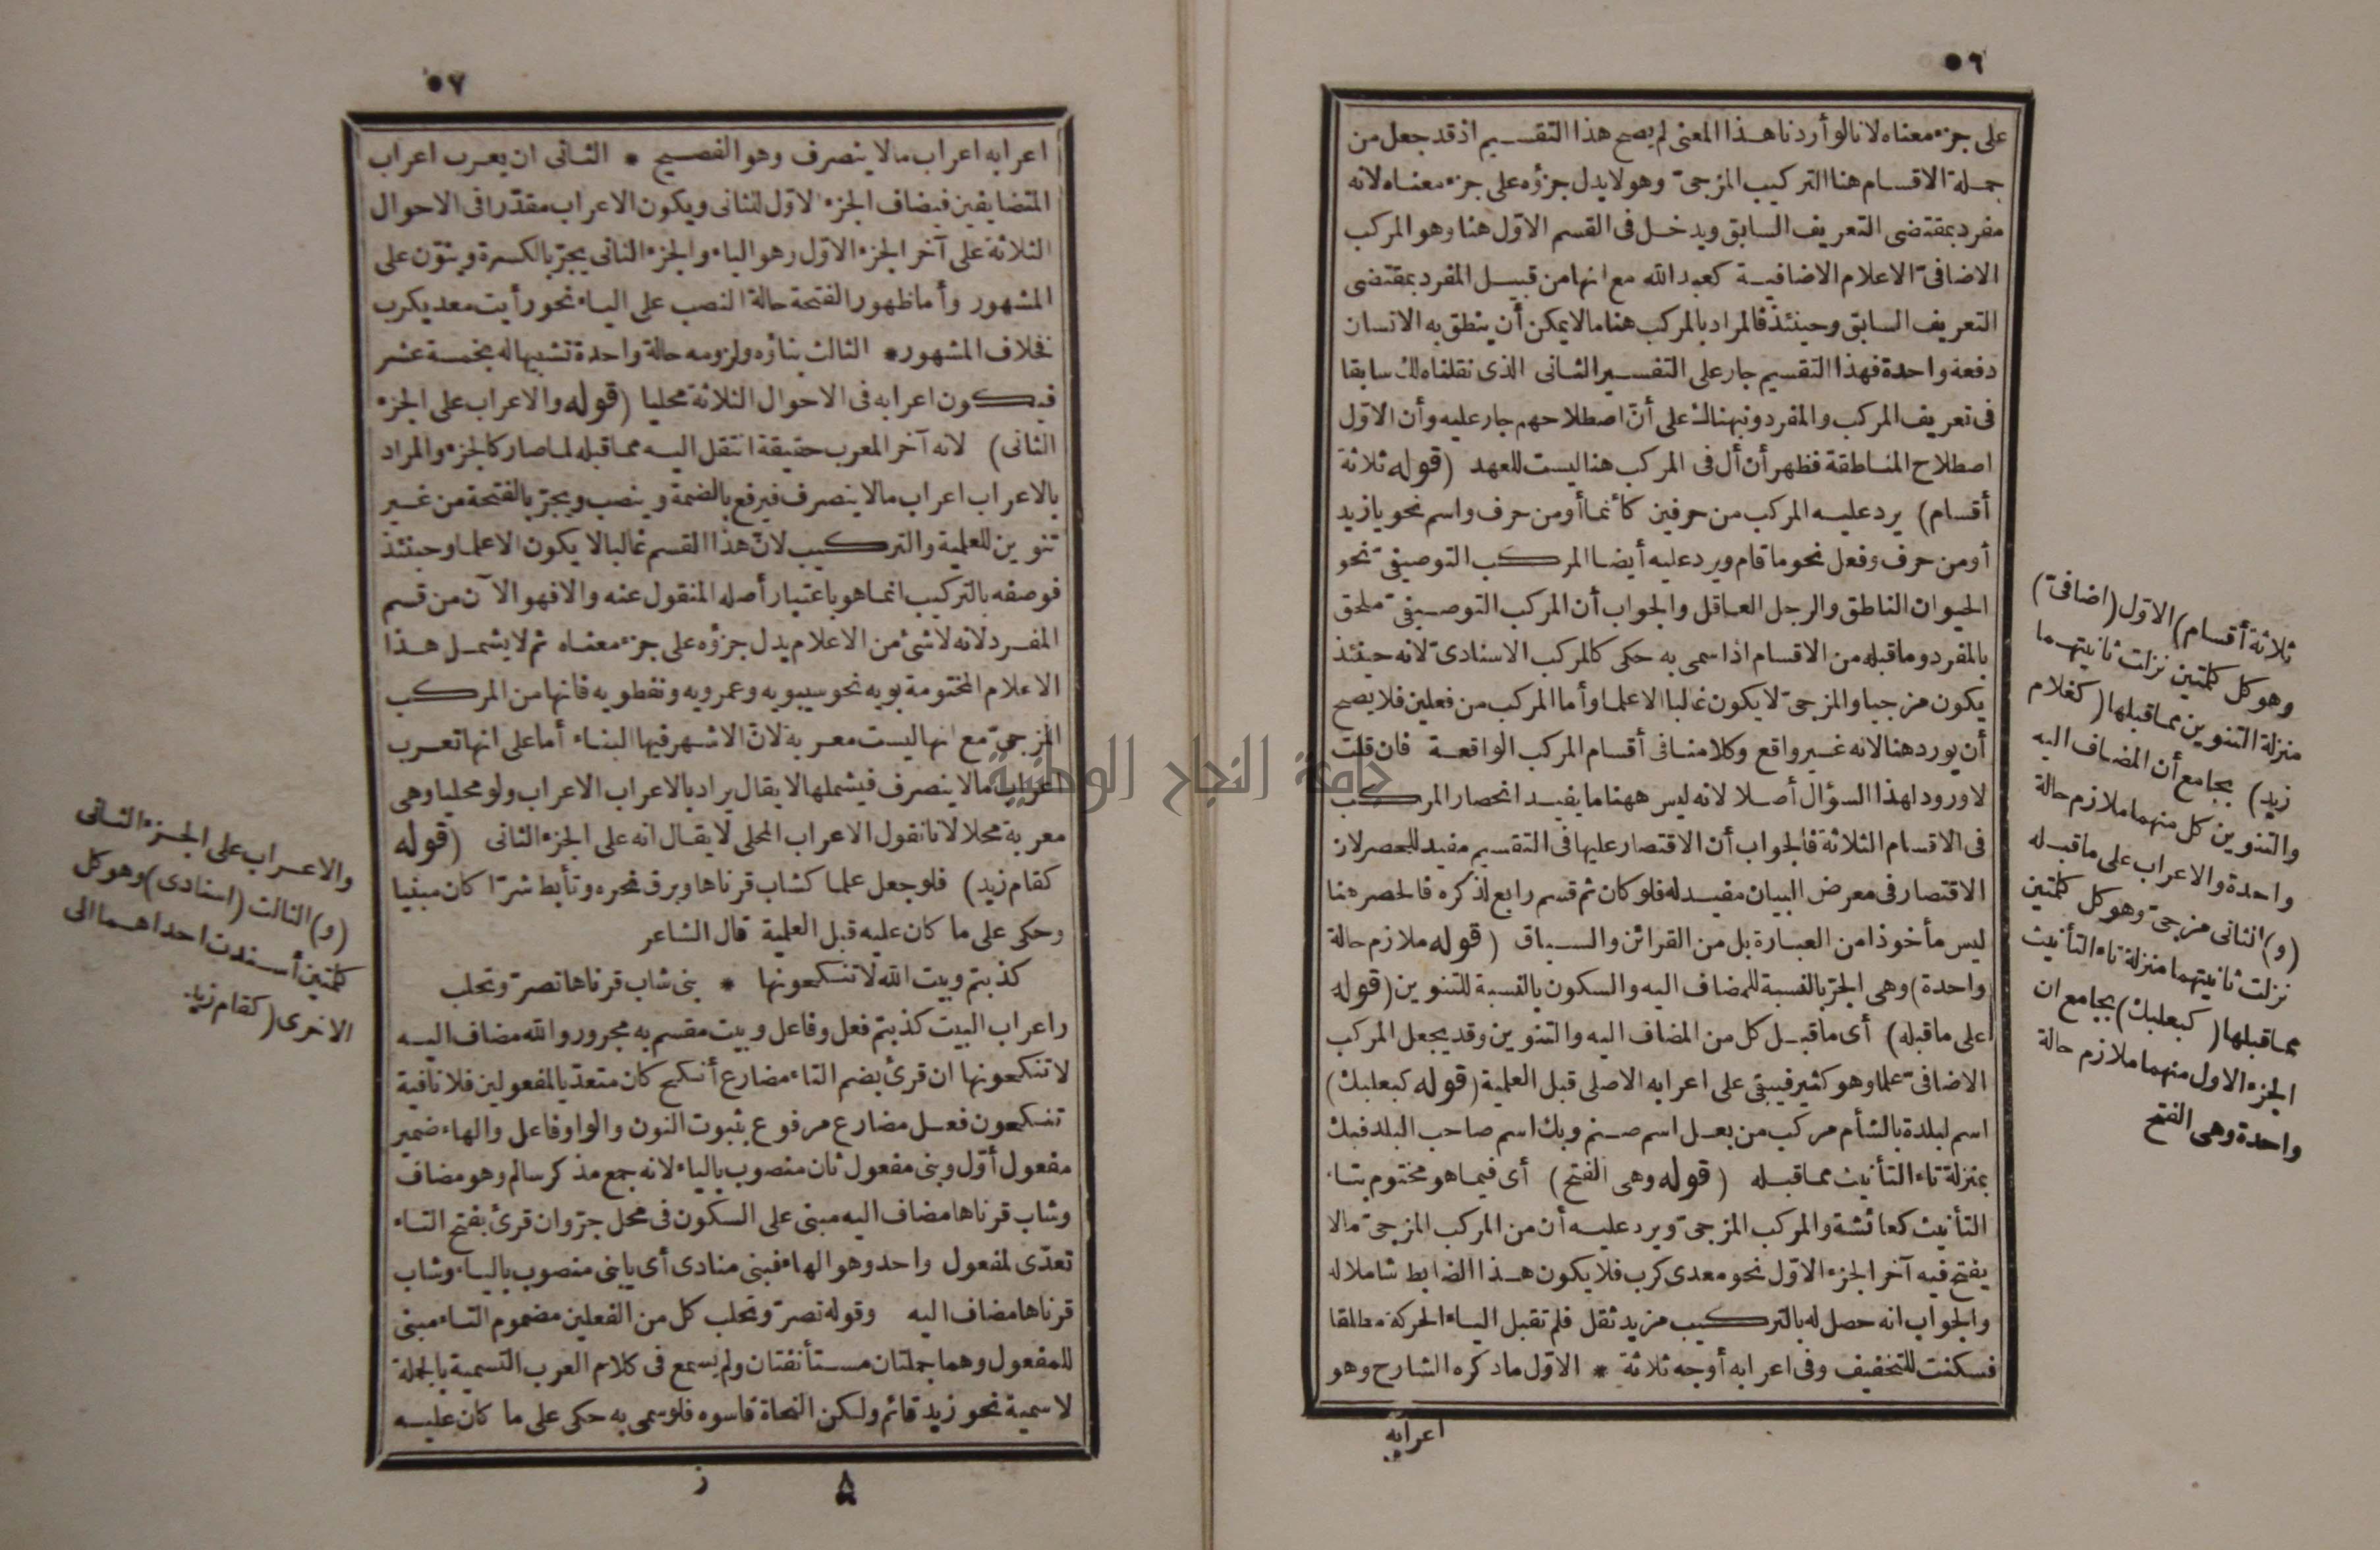 ٥٦
على جزء معناه لانا لو أردنا هذا المعنى لم يصح هذا التقسيم اذ قد جعل من
جملة الاقسام هنا التركيب المزجىّ وهو لا يدل جزؤه على جزء معناه لانه
مفرد بمقتضى التعريف السابق ويدخل فى القسم الاوّل هنا وهو المركب
الاضافىّ الاعلام الاضافية كعبد الله مع انها من قبيل المفرد بمقتضى
التعريف السابق وحينئذ فالمراد بالمركب هنا ما لا يمكن أن ينطق به الانسان
دفعة واحدة فهذا التقسيم جار على التفسير الثانى الذى نقلناه لك سابقا
فى تعريف المركب والمفرد ونبهناك على أنّ اصطلاحهم جار عليه وأن الاوّل
اصطلاح المناطقة فظهر أن أل فى المركب هنا ليست للعهد (قوله ثلاثة
أقسام) يرد عليه المركب من حرفين كأنما أو من حرف واسم نحو يا زيد
أو من حرف وفعل نحو ما قام ويرد عليه أيضا المركب التوصيفىّ نحو
الحيوان الناطق والرجل العاقل والجواب أن المركب التوصيفىّ ملحق
بالمفرد وما قبله من الاقسام اذا سمى به حكى كالمركب الاسنادىّ لانه حينئذ
يكون مزجيا والمزجىّ لا يكون غالبا الا علما وأما المركب من فعلين فلا يصح
أن يورد هنا لانه غير واقع وكلامنا فى أقسام المركب الواقعة فان قلت
لا ورود لهذا السؤال أصلا لانه ليس ههنا ما يفيد انحصار المركب
فى الاقسام الثلاثة فالجواب أن الاقتصار عليها فى التقسيم مفيد للحصر لان
الاقتصار فى معرض البيان مفيد له فلو كان ثم قسم رابع لذكره فالحصر هنا
ليس مأخوذا من العبارة بل من القرائن والسياق (قوله ملازم حالة
واحدة) وهى الجرّ بالنسبة للمضاف اليه والسكون بالنسبة للتنوين (قوله
على ما قبله) أى ما قبل كل من المضاف اليه والتنوين وقد يجعل المركب
الاضافىّ علما وهو كثير فيبقى على اعرابه الاصلى قبل العلمية (قوله كبعلبك)
اسم لبلدة بالشأم مركب من بعل اسم صنم وبك اسم صاحب البلد فبك
بمنزلة تاء التأنيث مما قبله (قوله وهى الفتح) أى فيما هو مختوم بتاء
التأنيث كعائشة والمركب المزجىّ ويرد عليه أن من المركب المزجىّ ما لا
يفتح فيه آخر الجزء الاوّل نحو معدى كرب فلا يكون هذا الضابط شاملا له
والجواب انه حصل له بالتركيب مزيد ثقل فلم تقبل الياء الحركة مطلقا
فسكنت للتخفيف وفى اعرابه أوجه ثلاثة * الاوّل ما ذكره الشارح وهو
اعرابه
ثلاثة أقسام) الاوّل (اضافىّ)
وهو كل كلمتين نزلت ثانيتهما
منزلة التنوين مما قبلها (كغلام
زيد) بجامع أن المضاف اليه
والتنوين كل منهما ملازم حالة
واحدة والاعراب على ما قبله
(و) الثانى مزجىّ وهو كل كلمتين
نزلت ثانيتهما منزلة تاء التأنيث
مما قبلها (كبعلبك) بجامع ان
الجزء الاول منهما ملازم حالة
واحدة وهى الفتح
٥٧
اعرابه اعراب ما لا ينصرف وهو الفصيح * الثانى ان يعرب اعراب
المتضايفين فيضاف الجزء الاوّل للثانى ويكون الاعراب مقدّرا فى الاحوال
الثلاثة على آخر الجزء الاوّل وهو الياء والجزء الثانى يجرّ بالكسرة وينوّن على
المشهور وأما ظهور الفتحة حالة النصب على الياء نحو رأيت معديكرب
فخلاف المشهور * الثالث بناؤه ولزومه حالة واحدة تشبيها له بخمسة عشر
فيكون اعرابه فى الاحوال الثلاثة محليا (قوله والاعراب على الجزء
الثانى) لانه آخر المعرب حقيقة انتقل اليه مما قبله لما صار كالجزء والمراد
بالاعراب اعراب ما لا ينصرف فيرفع بالضمة وينصب ويجرّ بالفتحة من غير
تنوين للعلمية والتركيب لانّ هذا القسم غالبا لا يكون الا علما وحينئذ
فوصفه بالتركيب انما هو باعتبار أصله المنقول عنه والا فهو الآن من قسم
المفرد لانه لا شئ من الاعلام يدل جزؤه على جزء معناه ثم لا يشمل هذا
الاعلام المختومة بويه نحو سيبويه وعمرويه ونفطويه فانها من المركب
المزجىّ مع انها ليست معربة لانّ الاشهر فيها البناء أما على انها تعرب
اعراب ما لا ينصرف فيشملها لا يقال يراد بالاعراب الاعراب ولو محليا وهى
معربة محلا لانا نقول الاعراب المحلى لا يقال انه على الجزء الثانى (قوله
كقام زيد) فلو جعل علما كشاب قرناها وبرق نحره وتأبط شرّا كان مبنيا
وحكى على ما كان عليه قبل العلمية قال الشاعر
كذبتم وبيت الله لا تنكحونها * بنى شاب قرناها تصرّ وتحلب
واعراب البيت كذبتم فعل وفاعل وبيت مقسم به مجرور والله مضاف اليه
لا تنكحونها ان قرئ بضم التاء مضارع أنكح كان متعدّيا لمفعولين فلا نافية
تنكحون فعل مضارع مرفوع بثبوت النون والواو فاعل والهاء ضمير
مفعول أوّل وبنى مفعول ثان منصوب بالياء لانه جمع مذكر سالم وهو مضاف
وشاب قرناها مضاف اليه مبنى على السكون فى محل جرّ وان قرئ بفتح التاء
تعدّى لمفعول واحد وهو الهاء فبنى منادى أى يا بنى منصوب بالياء وشاب
قرناها مضاف اليه وقوله تصرّ وتحلب كل من الفعلين مضموم التاء مبنى
للمفعول وهما جملتان مستأنفتان ولم يسمع فى كلام العرب التسمية بالجملة
لاسمية نحو زيد قائم ولكن النحاة قاسوه فلو سمى به حكى على ما كان عليه
٨ ز
والاعراب على الجزء الثانى
(و) الثالث (اسنادى) وهو كل
كلمتين أسندت احداهما الى
الاخرى (كقام زيد
جامعة النجاح الوطنية